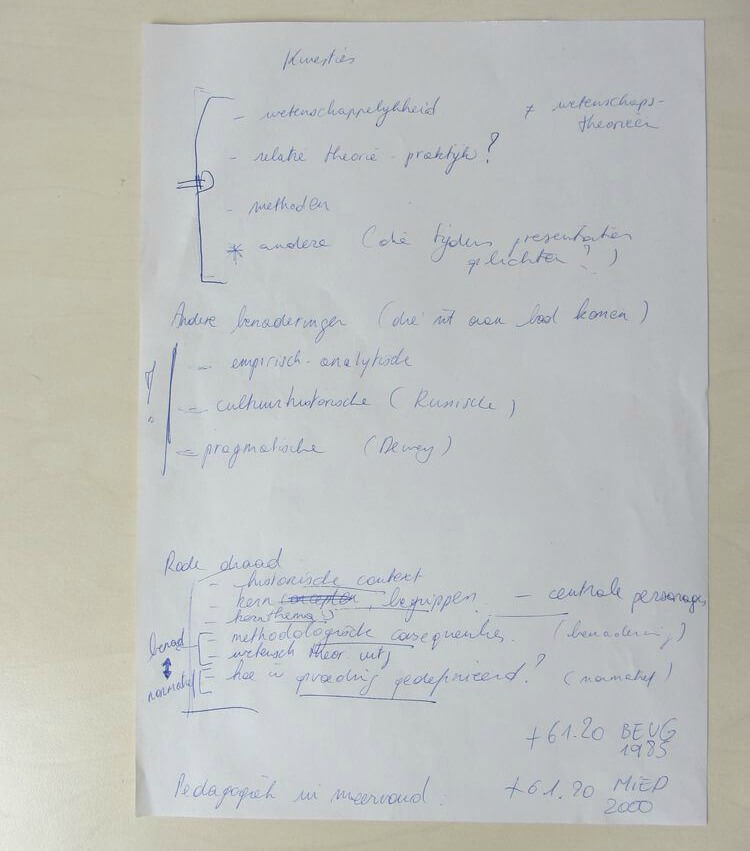 Kwesties
- wetenschappelijkheid ≠ wetenschaps-
theorieën
- relatie theorie - praktijk?
- methoden
* andere (die tijdens presentaties
oplichten?)
Andere benaderingen (die nt aan bod komen)
- empirisch-analytische
- cultuurhistorische (Russische)
- pragmatische (Dewey)
Rode draad
- historische context
- kern concepten, begrippen - centrale personages
- kernthema's
- methodologische consequenties. (benadering)
- wetensch theor. uitg
benad
normatief
- hoe is opvoeding gedefinieerd? (normatief)
+61.20 BEUG
1985
Pedagogiek in meervoud. +61.20 MIED
2000